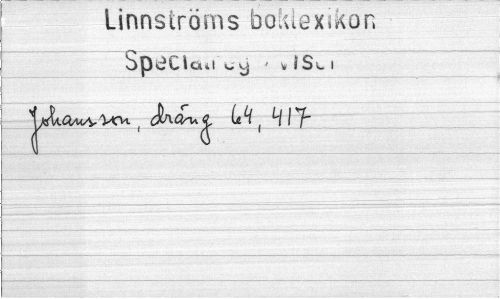 Linnströms boklexikon
Specialreg. Visor
Johansson, dräng 64, 417